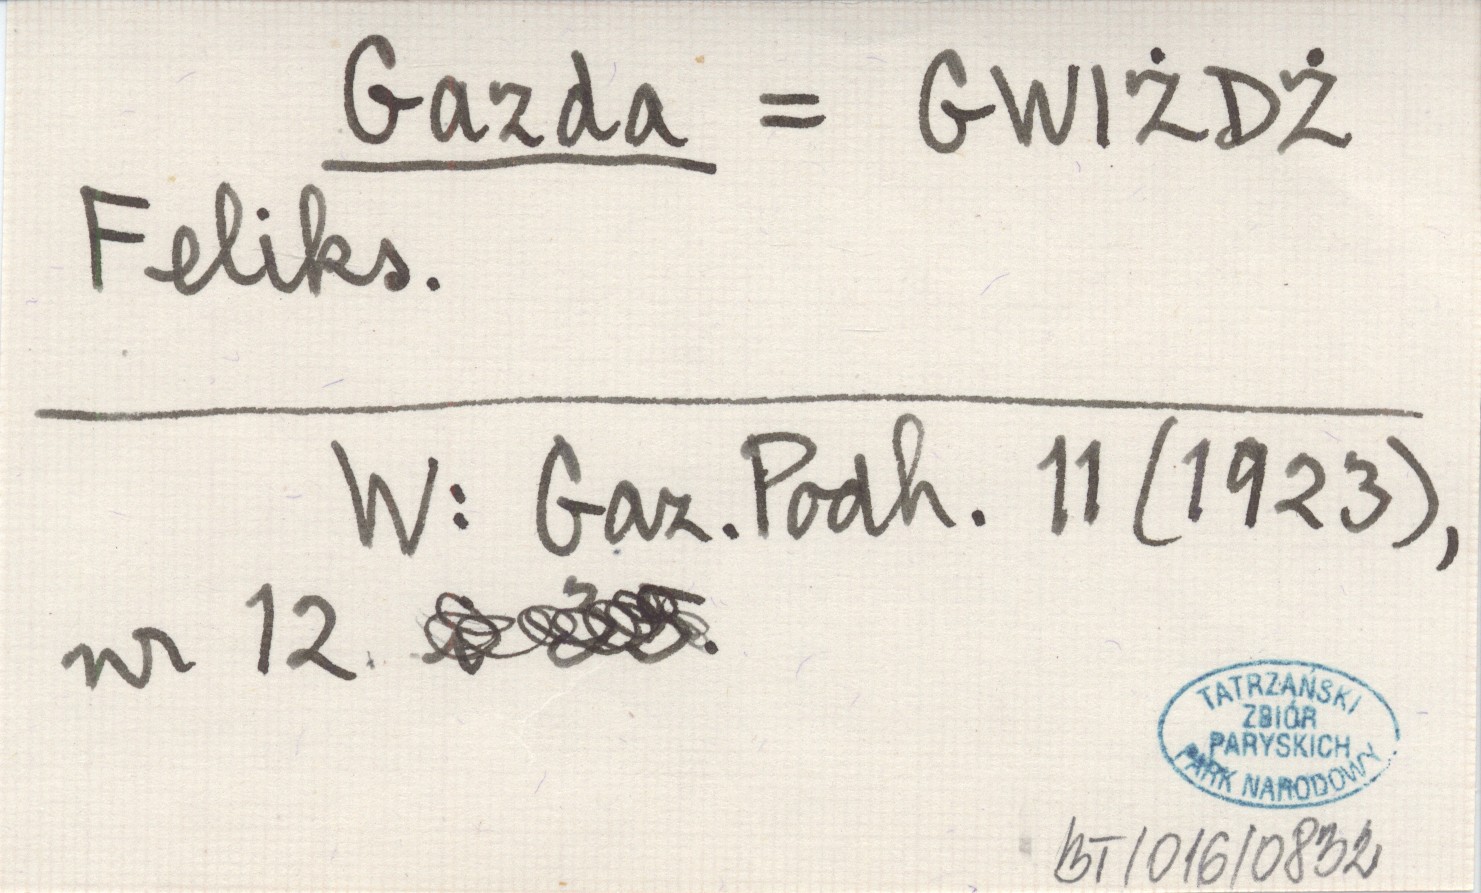 Gazda = GWIŻDŻ
Feliks.
W: Gaz. Podh. 11 (1923),
nr 12.
TATRZAŃSKI
ZBIÓR
PARYSKICH
PARK NARODOWY
BT/016/0832